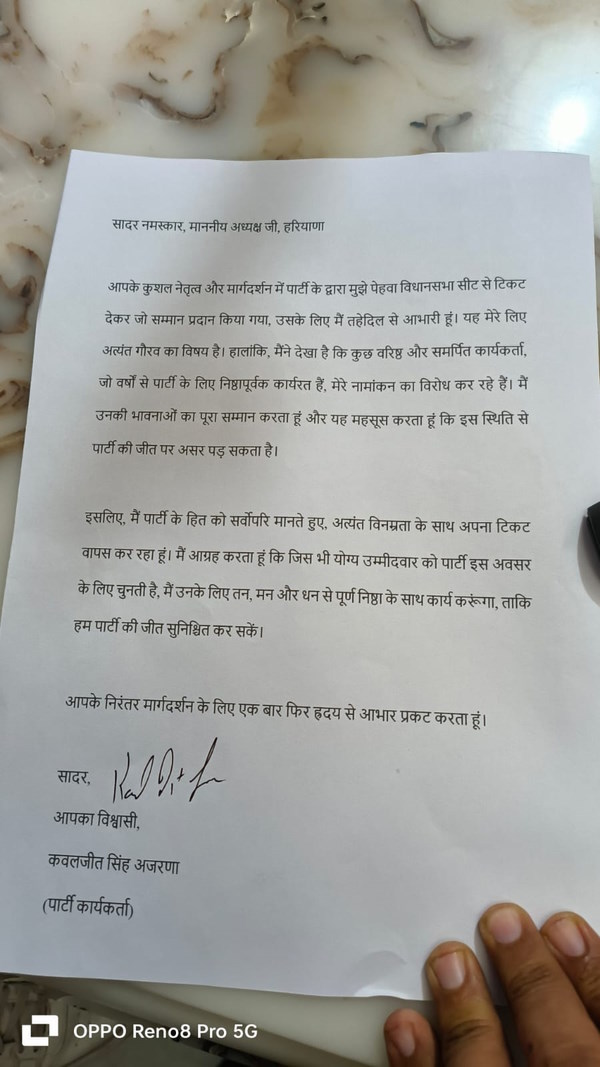 सादर नमस्कार, माननीय अध्यक्ष जी, हरियाणा
आपके कुशल नेतृत्व और मार्गदर्शन में पार्टी के द्वारा मुझे पेहवा विधानसभा सीट से टिकट
देकर जो सम्मान प्रदान किया गया, उसके लिए मैं तहेदिल से आभारी हूं। यह मेरे लिए
अत्यंत गौरव का विषय है। हालांकि, मैंने देखा है कि कुछ वरिष्ठ और समर्पित कार्यकर्ता,
जो वर्षों से पार्टी के लिए निष्ठापूर्वक कार्यरत हैं, मेरे नामांकन का विरोध कर रहे हैं। मैं
उनकी भावनाओं का पूरा सम्मान करता हूं और यह महसूस करता हूं कि इस स्थिति से
पार्टी की जीत पर असर पड़ सकता है।
इसलिए, मैं पार्टी के हित को सर्वोपरि मानते हुए, अत्यंत विनम्रता के साथ अपना टिकट
वापस कर रहा हूं। मैं आग्रह करता हूं कि जिस भी योग्य उम्मीदवार को पार्टी इस अवसर
के लिए चुनती है, मैं उनके लिए तन, मन और धन से पूर्ण निष्ठा के साथ कार्य करूंगा, ताकि
हम पार्टी की जीत सुनिश्चित कर सकें।
आपके निरंतर मार्गदर्शन के लिए एक बार फिर ह्रदय से आभार प्रकट करता हूं।
सादर,
आपका विश्वासी,
कवलजीत सिंह अजराणा
(पार्टी कार्यकर्ता)
OPPO Reno8 Pro 5G